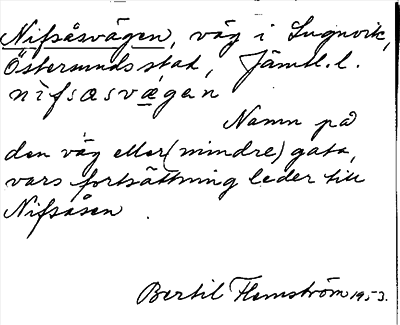 Nifsåsvägen, väg i Lugnvik,
Östersunds stad, Jämtl. l.
nifsasvægan
Namn på
den väg eller (mindre) gata,
vars fortsättning leder till
Nifsåsen.
Bertil Flemström 1953.